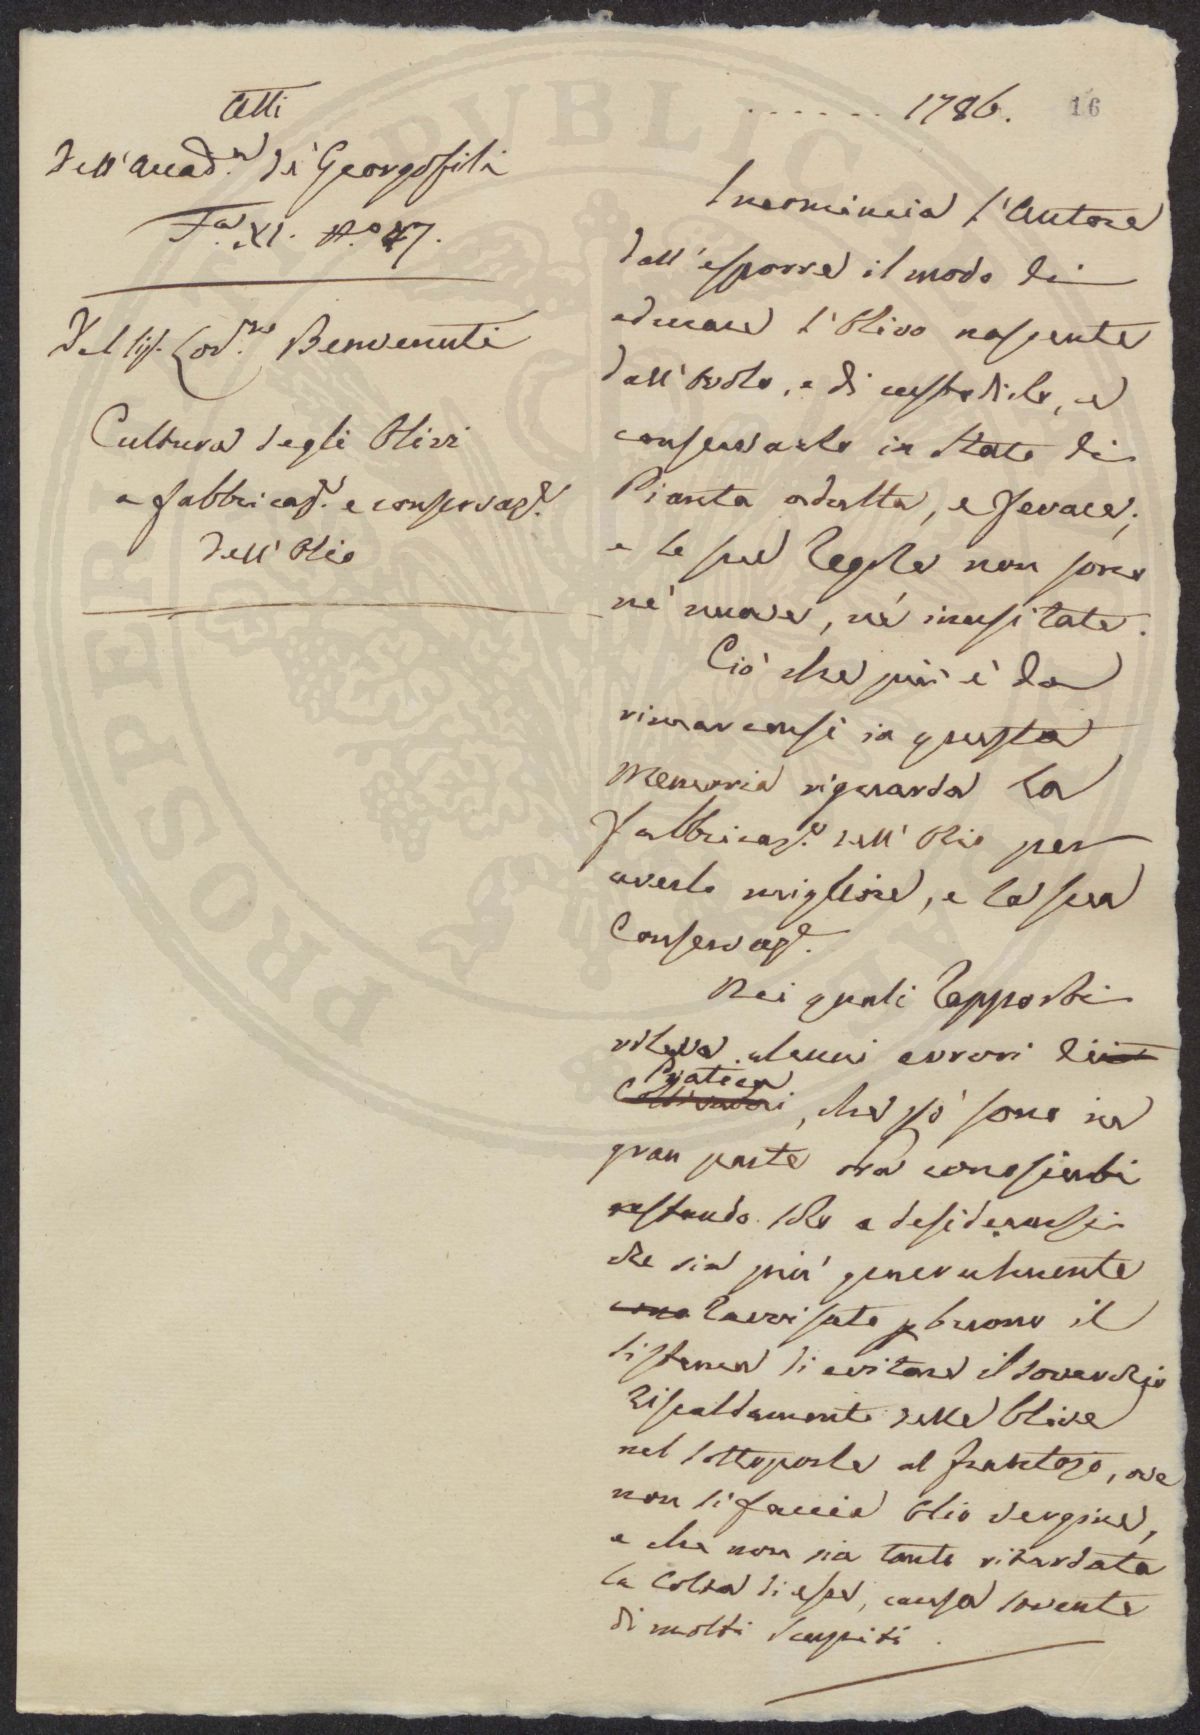 Atti
dell'Accad.a de' Georgofili
F.a XI. N.o 47.
Del Sig. Lod.co Benvenuti
Cultura degli Olivi
e fabbricaz.e e conservaz.e
dell'Olio
. . . . . . . 1786.
16
Incomincia l'Autore
dall'esporre il modo di
educare l'Olivo nascente
dall'Ovolo, e di custodirlo, e
conservarlo in stato di
Pianta adulta, e ferace;
e le sue Regole non sono
nè nuove, nè inusitate.
Ciò che più è da
rimarcarsi in questa
Memoria riguarda la
fabbricaz.e dell'Olio per
averlo migliore, e la sua
Conservaz.e
Nei quali Rapporti
rileva alcuni errori di
Pratica
Coltivatori, che però sono in
gran parte ora conosciuti
restando solo a desiderarsi
che sia più generalmente
ravvisato p buono il
sistema di evitare il soverchio
Riscaldamento delle Olive
nel sottoporle al frantojo, ove
non si faccia Olio vergine,
e che non sia tanto ritardata
la Colta di esse, causa sovente
di molti scapiti.
PROSPERITATI PUBLICAE